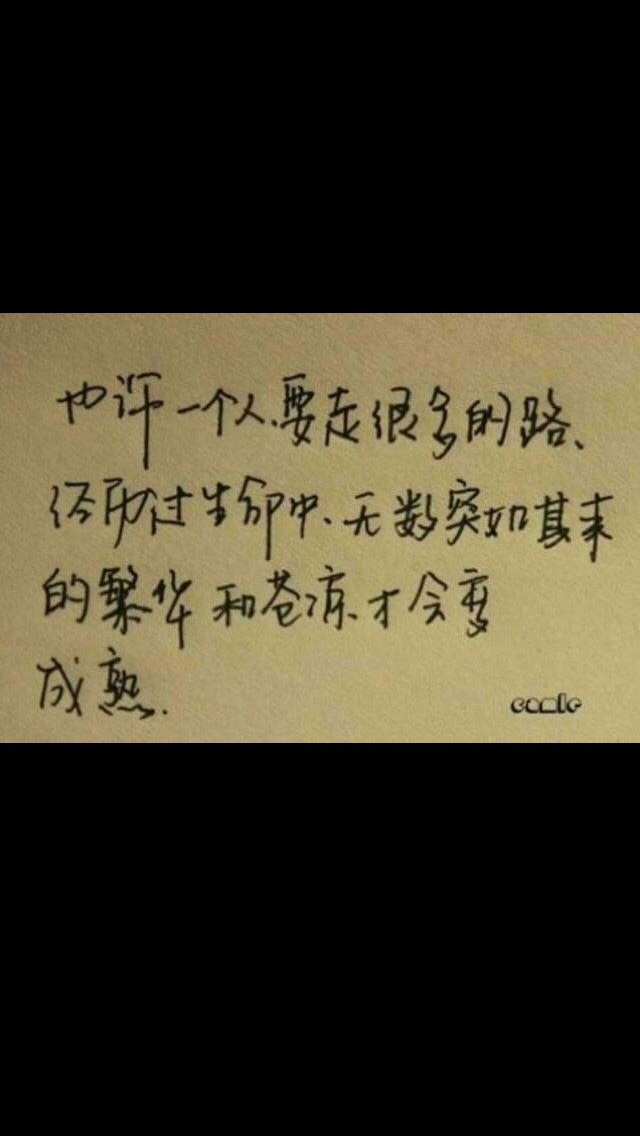 也许一个人.要走很多的路、
经历过生命中、无数突如其来
的繁华和苍凉.才会变
成熟.
comic